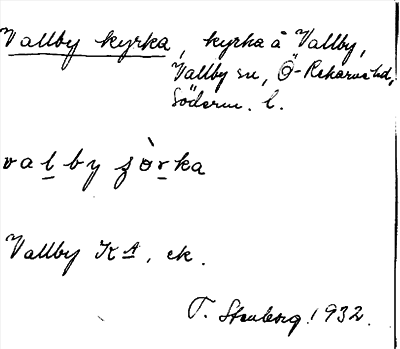 Vallby kyrka, kyrka å Vallby,
Vallby sn, Ö-Rekarne hd,
Söderm. l.
valby
Vallby K A, ek.
T. Stenberg 1932.